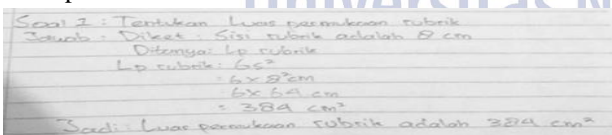 Soal 1 : Tentukan Luas permukaan rubrik
Jawab : Diket : Sisi rubrik adalah 8 cm
Ditanya : Lp rubrik
Lp rubrik : 6s²
= 6 x 8² cm
6 x 64 cm
= 384 cm²
Jadi : Luas permukaan rubrik adalah 384 cm²